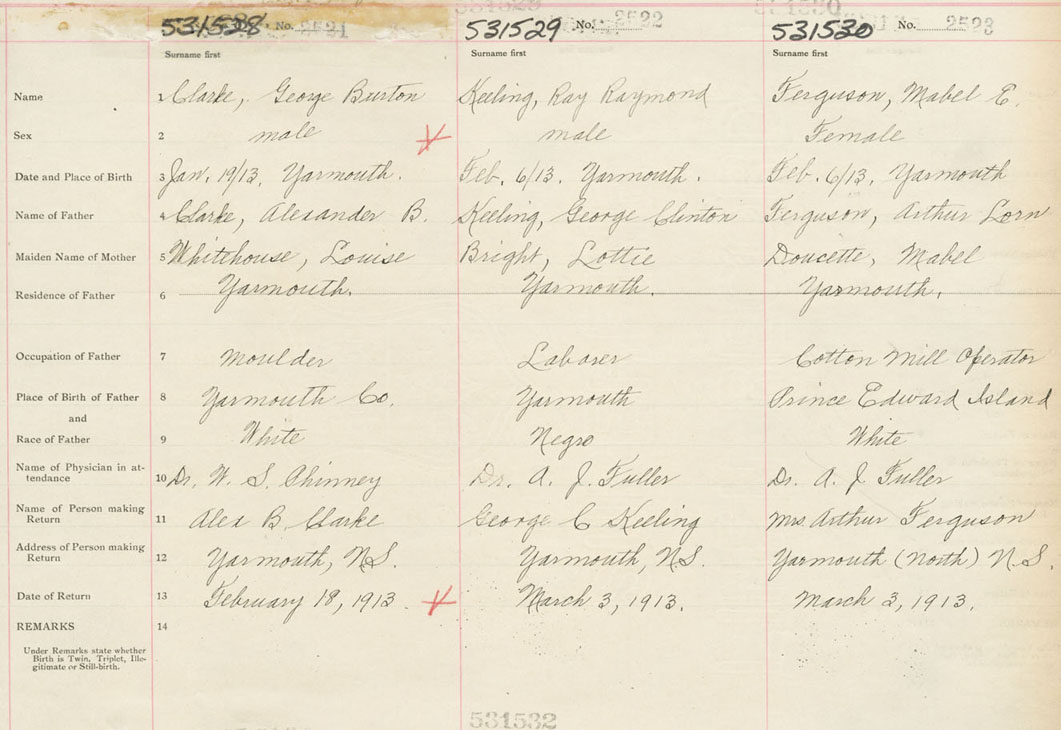 531528 No. 2521 531529 No. 2522 531530 No. 2523
Surname first Surname first Surname first
Name 1 Clarke, George Burton Keeling, Ray Raymond Ferguson, Mabel E.
Sex 2 male male Female
Date and Place of Birth 3 Jan. 19/13, Yarmouth. Feb. 6/13. Yarmouth. Feb. 6/13, Yarmouth
Name of Father 4 Clarke, Alexander B. Keeling, George Clinton Ferguson, Arthur Lorn
Maiden Name of Mother 5 Whitehouse, Louise Bright, Lottie Doucette, Mabel
Residence of Father 6 Yarmouth. Yarmouth. Yarmouth.
Occupation of Father 7 Moulder Laborer Cotton Mill Operator
Place of Birth of Father 8 Yarmouth Co. Yarmouth Prince Edward Island
and
Race of Father 9 White Negro White
Name of Physician in at-
tendance 10 Dr. W. S. Phinney Dr. A. J. Fuller Dr. A. J. Fuller
Name of Person making
Return 11 Alex B. Clarke George C Keeling Mrs. Arthur Ferguson
Address of Person making
Return 12 Yarmouth, N.S. Yarmouth, N.S. Yarmouth (North) N.S.
Date of Return 13 February 18, 1913. March 3, 1913. March 3, 1913.
REMARKS 14
Under Remarks state whether
Birth is Twin, Triplet, Ille-
gitimate or Still-birth.
531532